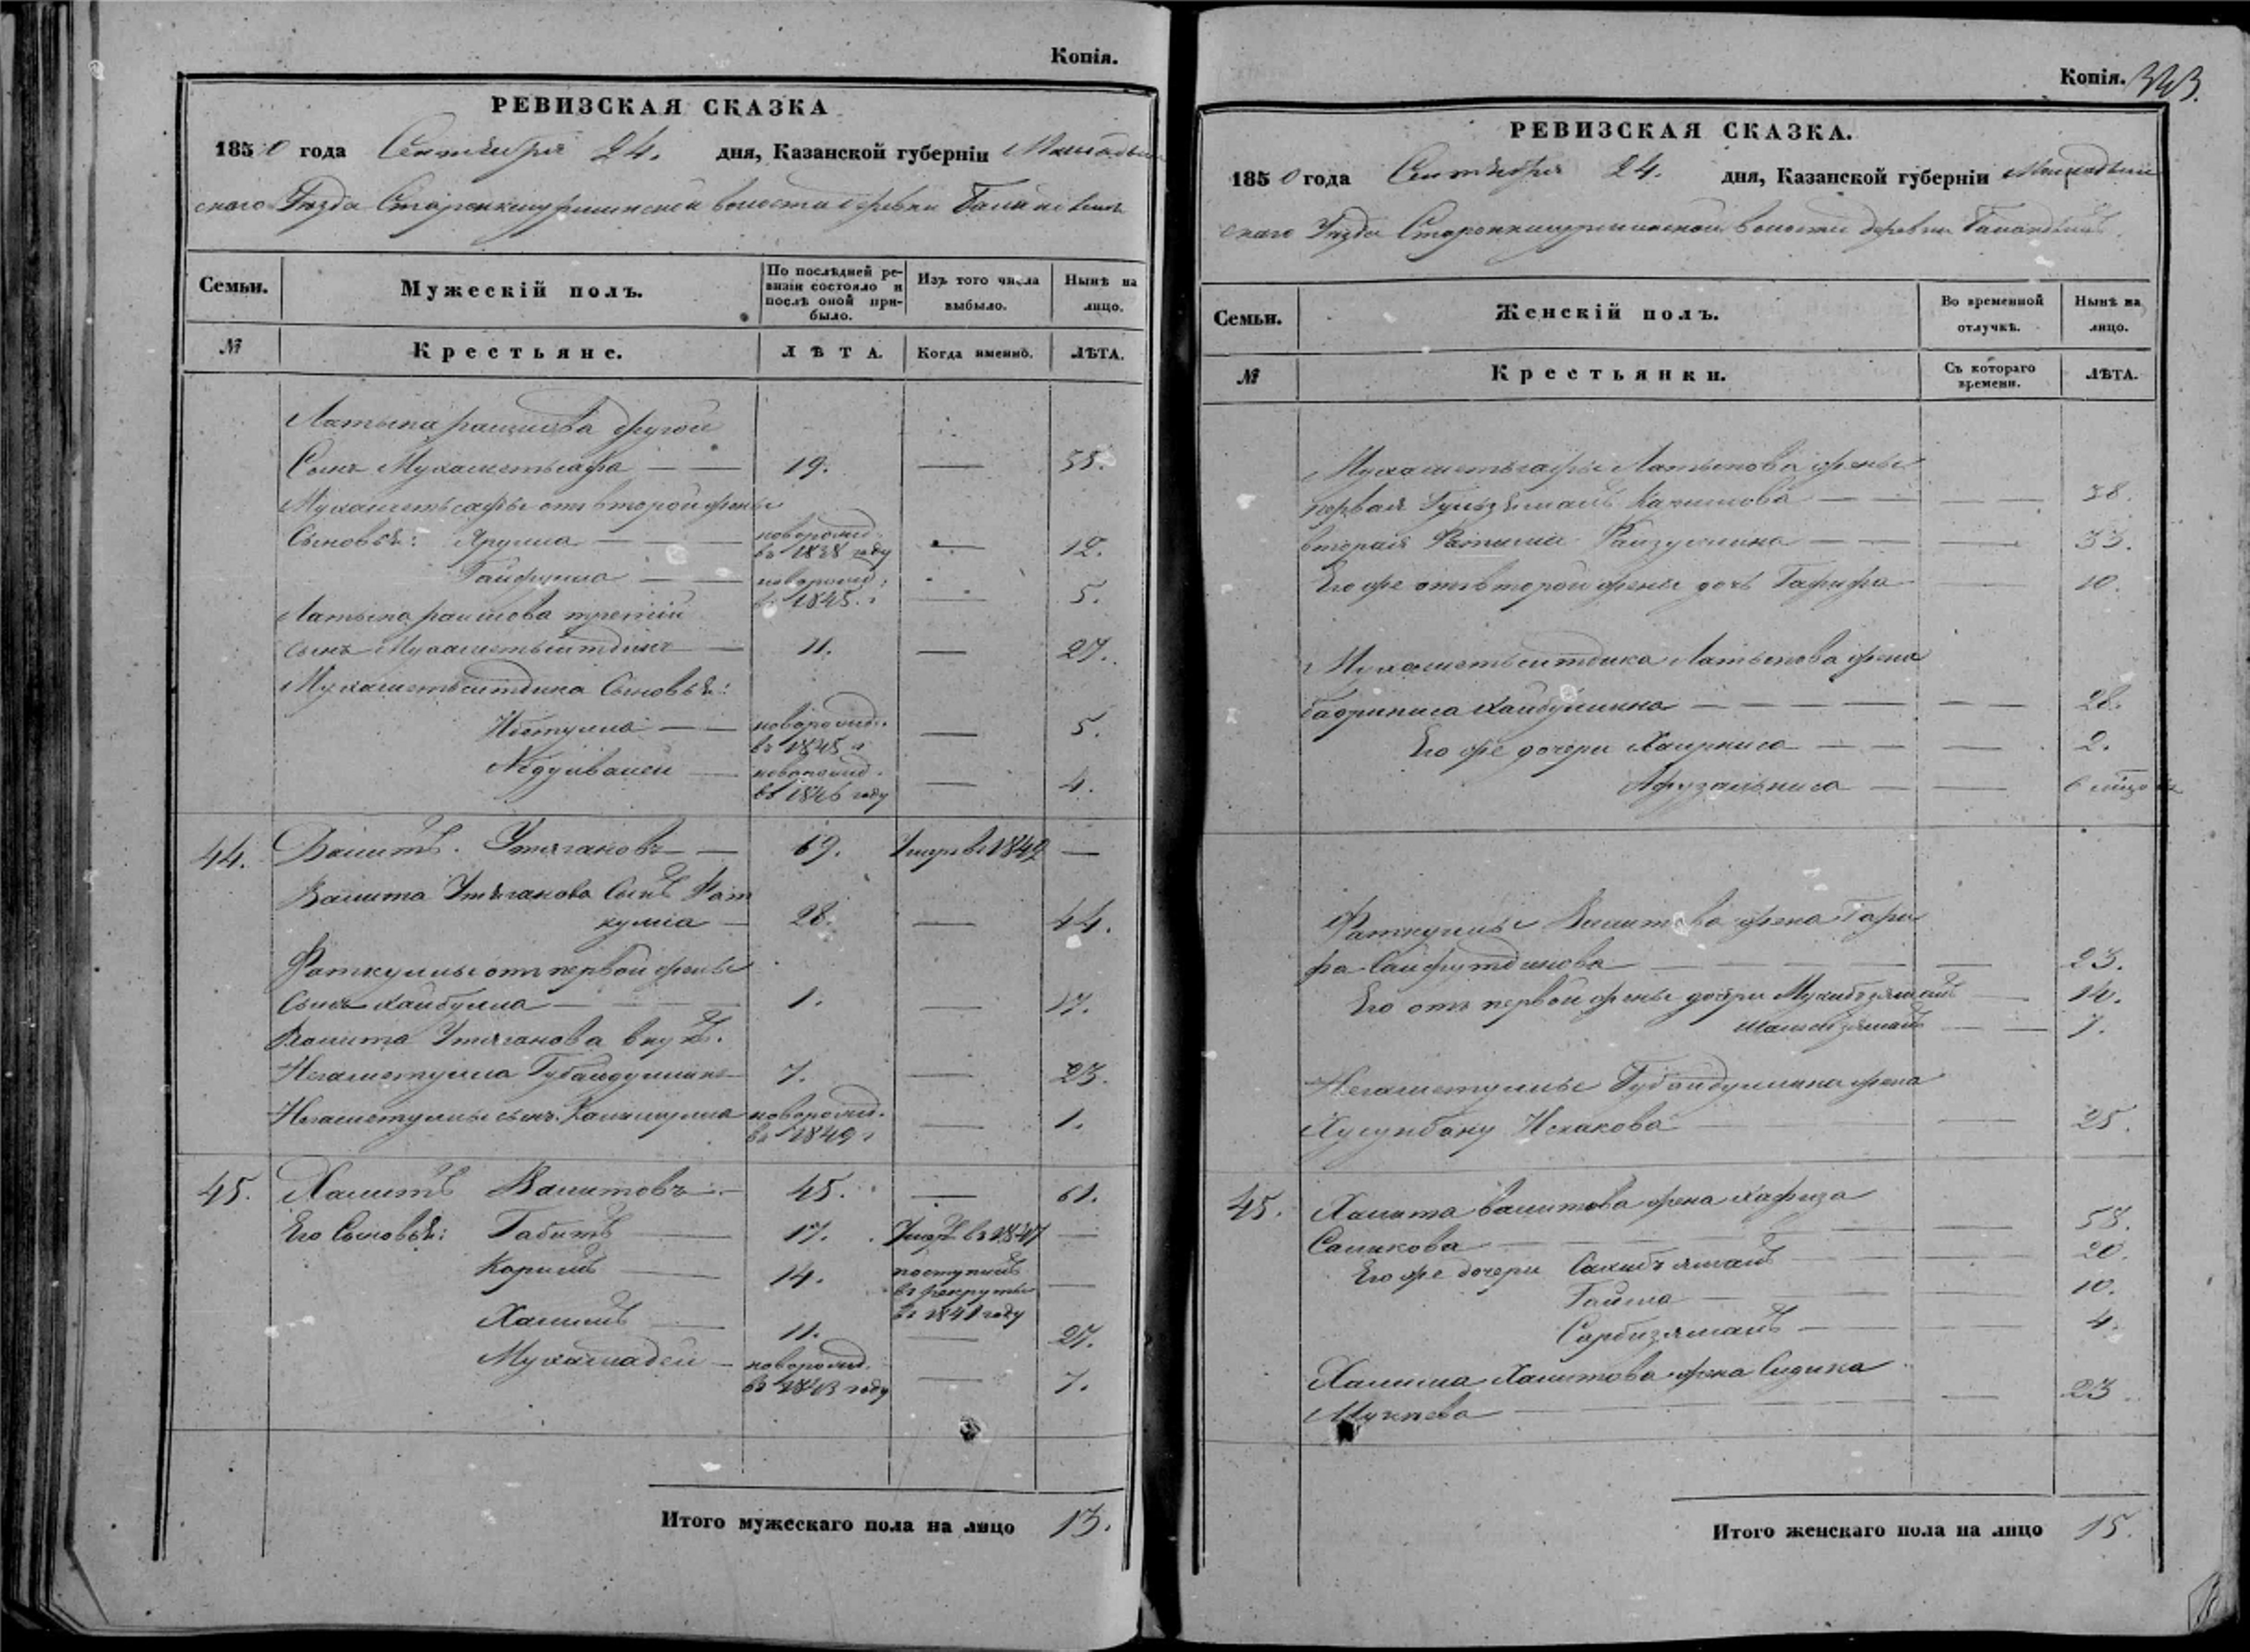 Копія.
РЕВИЗСКАЯ СКАЗКА
1850 года Сентября 24. дня, Казанской губерніи Мамадыш
скаго Уѣзда волости деревни
Семьи. Мужескій полъ. По послѣдней ре-
визіи состояло и
послѣ оной при-
было. Изъ того числа
выбыло. Нынѣ на
лицо.
№ Крестьяне. ЛѢТА. Когда именно. ЛѢТА.
Латыпа другой
Сынъ Мухаметьсафа — — 19. — 35.
Мухаметьсафы отъ второй жены
Сыновья: Ярулла — — новорожд.
въ 1838 году — 12.
Гайфулла — — новорожд.
въ 1845. — 5.
Латыпа третій
сынъ Мухаметьситдикъ — 11. — 27.
Мухаметьситдика Сыновья:
— — новорожд.
въ 1845 г — 5.
Абдулвалей — новорожд.
въ 1846 году — 4.
44. Валитъ Утягановъ — — 69. Умеръ въ 1849 —
Валита Утяганова Сынъ Фат
кулла — 28. — 44.
Фаткуллы отъ первой жены
Сынъ Хайбулла — — — 1. — 17.
Валита Утяганова внукъ.
Негаметулла Губайдуллинъ 7. — 23.
Негаметуллы сынъ новорожд.
въ 1849 г — 1.
45. Халитъ Валитовъ — 45. — 61.
Его Сыновья: Габитъ — 17. Умеръ въ 1847 —
Каримъ — 14. поступилъ
въ рекруты
въ 1841 году —
Халимъ — 11. — 27.
Мухамадей — новорожд.
въ 1843 году — 7.
Итого мужескаго пола на лицо 13.
Копія. 343.
РЕВИЗСКАЯ СКАЗКА.
1850 года Сентября 24. дня, Казанской губерніи Мамадыш
скаго Уѣзда волости деревни
Семьи. Женскій полъ. Во временной
отлучкѣ. Нынѣ на
лицо.
№ Крестьянки. Съ котораго
времени. ЛѢТА.
Мухаметьсафы Латыпова жены
первая Каримова — — — 38.
вторая Файзуллина — — — 33.
Его же отъ второй жены дочь Гафифа — 10.
Мухаметьситдика Латыпова жена
Бадриниса Хайбуллина — — — — 28.
Его же дочери Хаирниса — — — 2.
Афузальниса — — 6
Фаткуллы Валитова жена Гари
фа Сайфутдинова — — — — 23.
Его отъ первой жены дочери Мухибзямалъ — 14.
— — 7.
Негаметуллы Губайдуллина жена
Исхакова — — 25.
45. Халита Валитова жена Хафиза
Саликова — — — — 58.
Его же дочери Сахибъямалъ — — 20.
— — — 10.
Сарбизямалъ — — — 4.
Халима Халитова жена Сидика
— — 23
Итого женскаго пола на лицо 15.